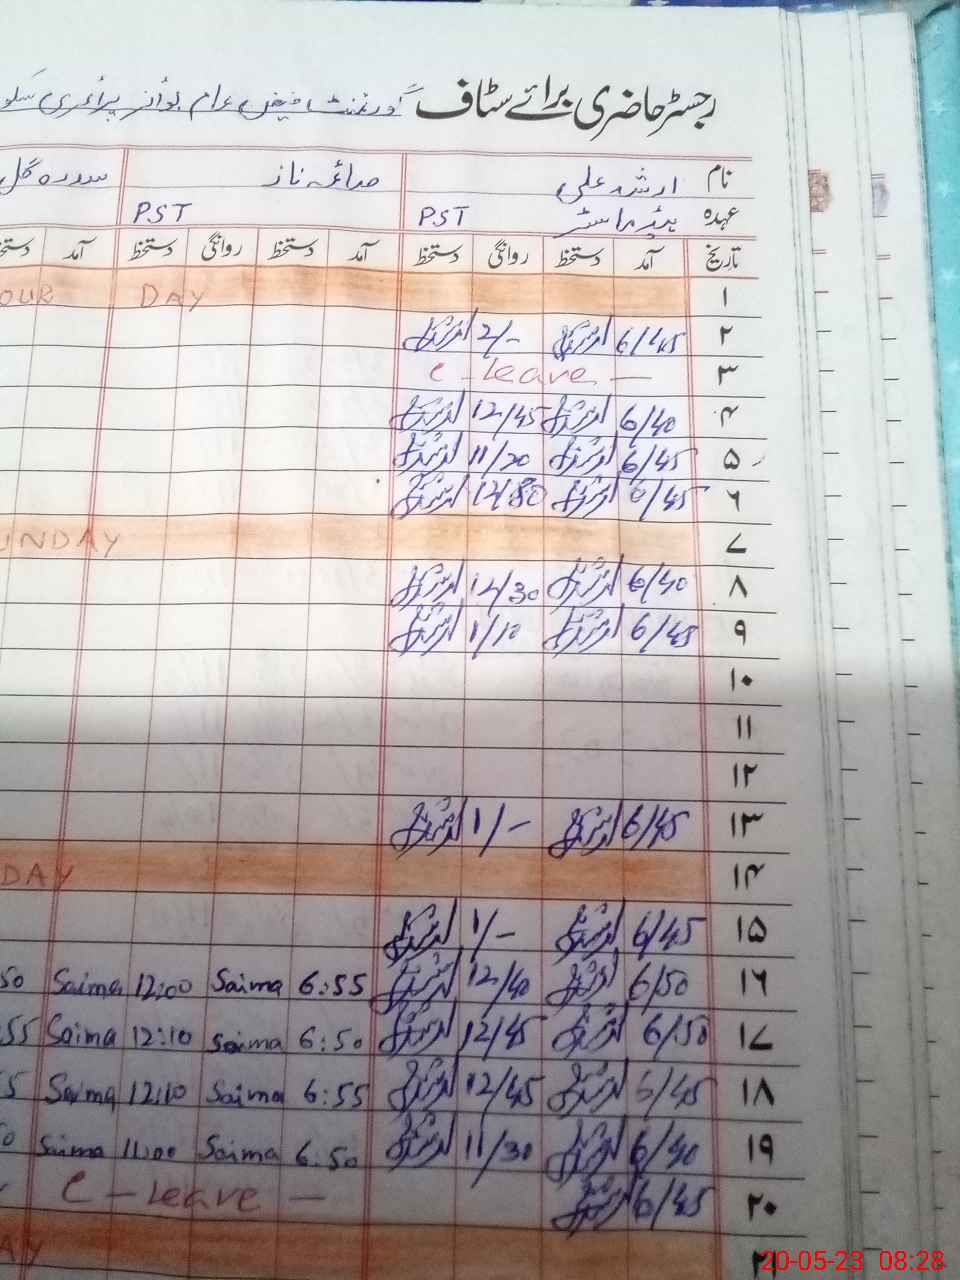 رجسٹر حاضری برائے سٹاف گورنمنٹ فیض عام بوائز پرائمری سکول
نام ارشد علی صائمہ ناز سدرہ گل
عہدہ ہیڈ ماسٹر PST PST
تاریخ آمد دستخط روانگی دستخط آمد دستخط روانگی دستخط آمد
۱ DAY OUR
۲ 6/45 ارشد 2/- ارشد
۳ C-Leave —
۴ 6/40 ارشد 12/45 ارشد
۵ 6/45 ارشد 11/20 ارشد
۶ 6/45 ارشد ارشد
۷ UNDAY
۸ 6/40 ارشد 12/30 ارشد
۹ 6/45 ارشد 1/10 ارشد
۱۰
۱۱
۱۲
۱۳ 6/45 ارشد 1/- ارشد
۱۴ DAY
۱۵ 6/45 ارشد 1/- ارشد
۱۶ 6/50 ارشد 12/40 ارشد 6:55 Saima 12:00 Saima 50
۱۷ 6/50 ارشد 12/45 ارشد 6:50 Saima 12:10 Saima 55
۱۸ 6/45 ارشد 12/45 ارشد 6:55 Saima 12:10 Saima
۱۹ 6/40 ارشد 11/30 ارشد 6:50 Saima 11:00 Saima
۲۰ 6/45 ارشد C-Leave —
AY
20-05-23 08:28